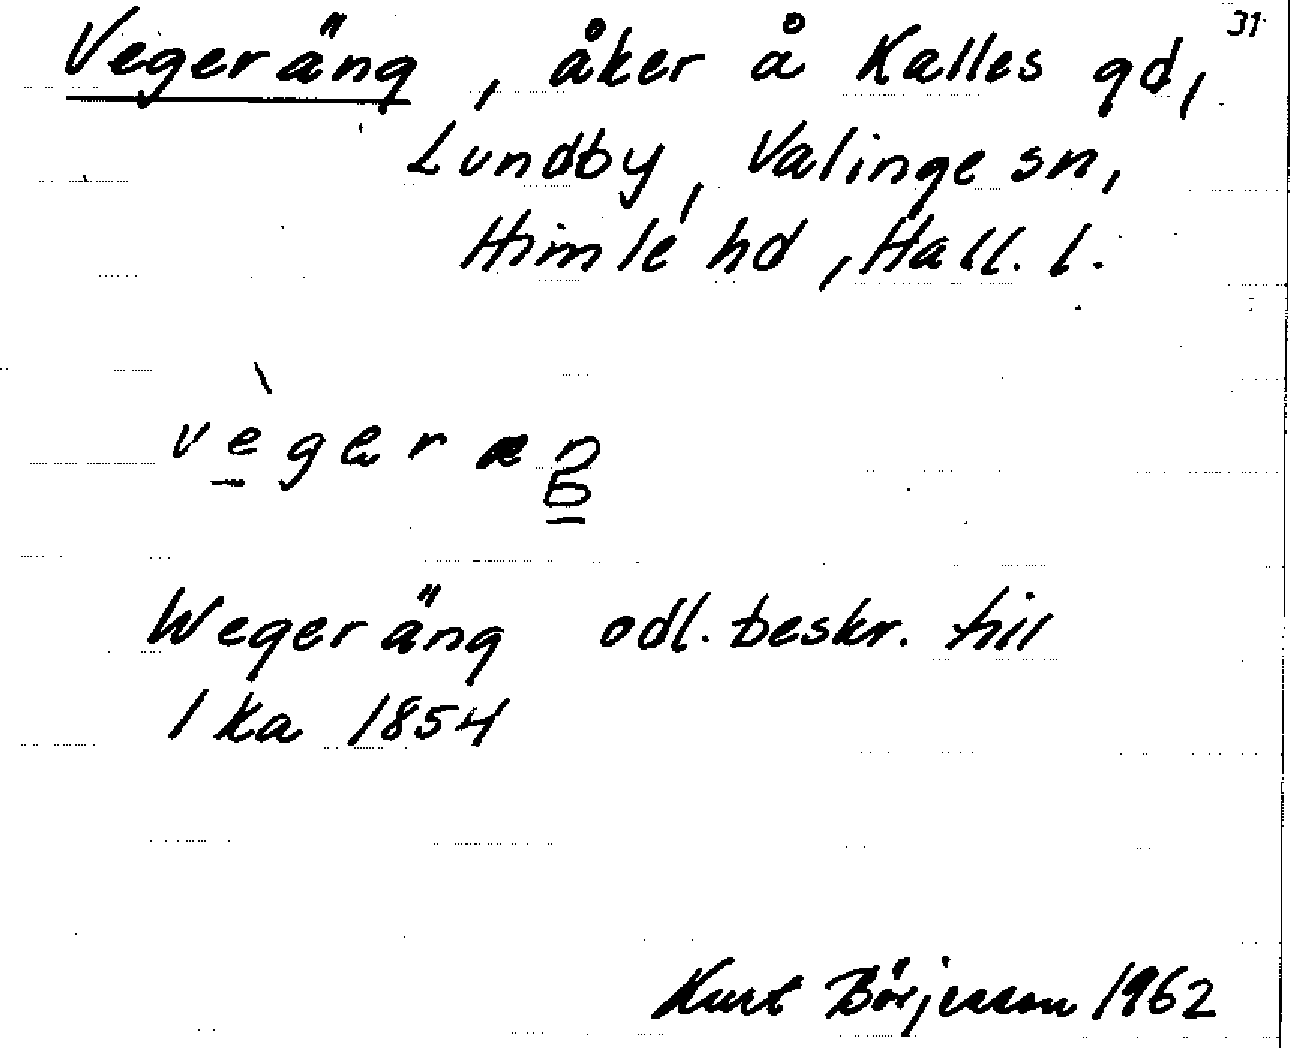 31
Vegeräng, åker å Kalles gd,
Lundby, Valinge sn,
Himle hd, Hall. l.
vègeræŋ
Wegeräng odl. beskr. till
1 ka 1854
Kurt Börjesson 1962